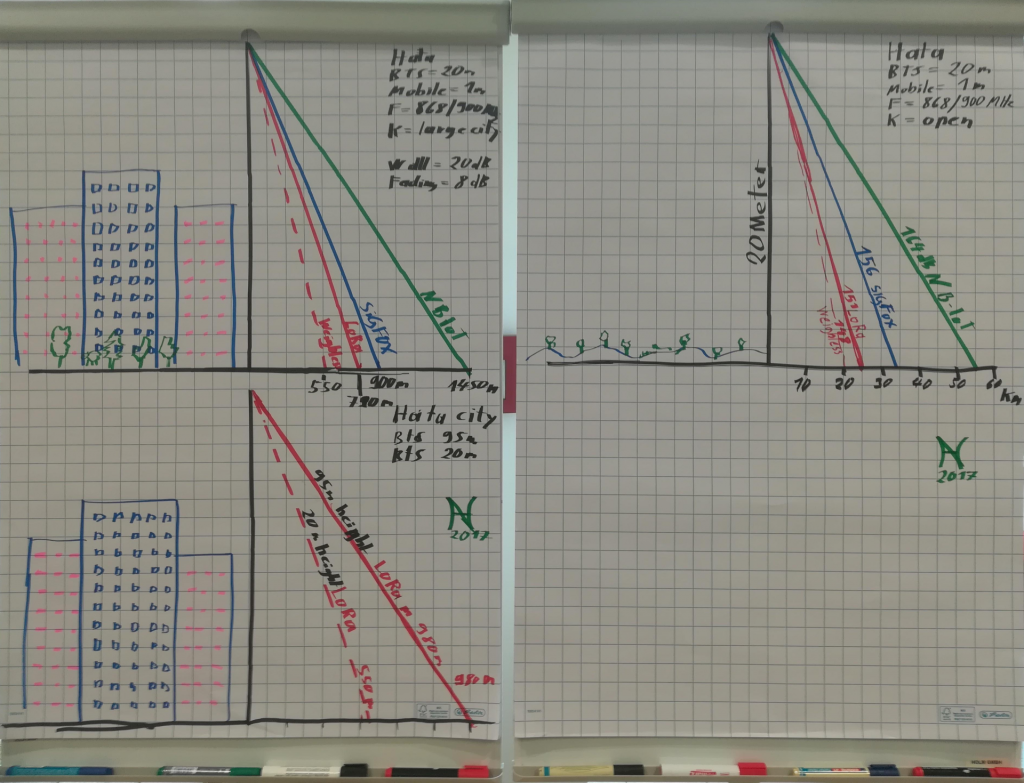 Hata
BTS = 20m
Mobile = 1m
F = 868/900M
K = large city
Wall = 20dB
Fading = 8dB
Weighless
LoRa
SigFOX
NB IoT
550
900m
1450m
Hata city
Bts 95m
20m
95m height LoRa m 980m
20m height LoRa
550m
980m
N
2017
Hata
BTS = 20m
Mobile = 1m
F = 868/900 MHz
K = open
20 Meter
164dB NB-IoT
156 SigFox
151 LoRa
Weighless
10
20
30
40
50
60
Km
N
2017